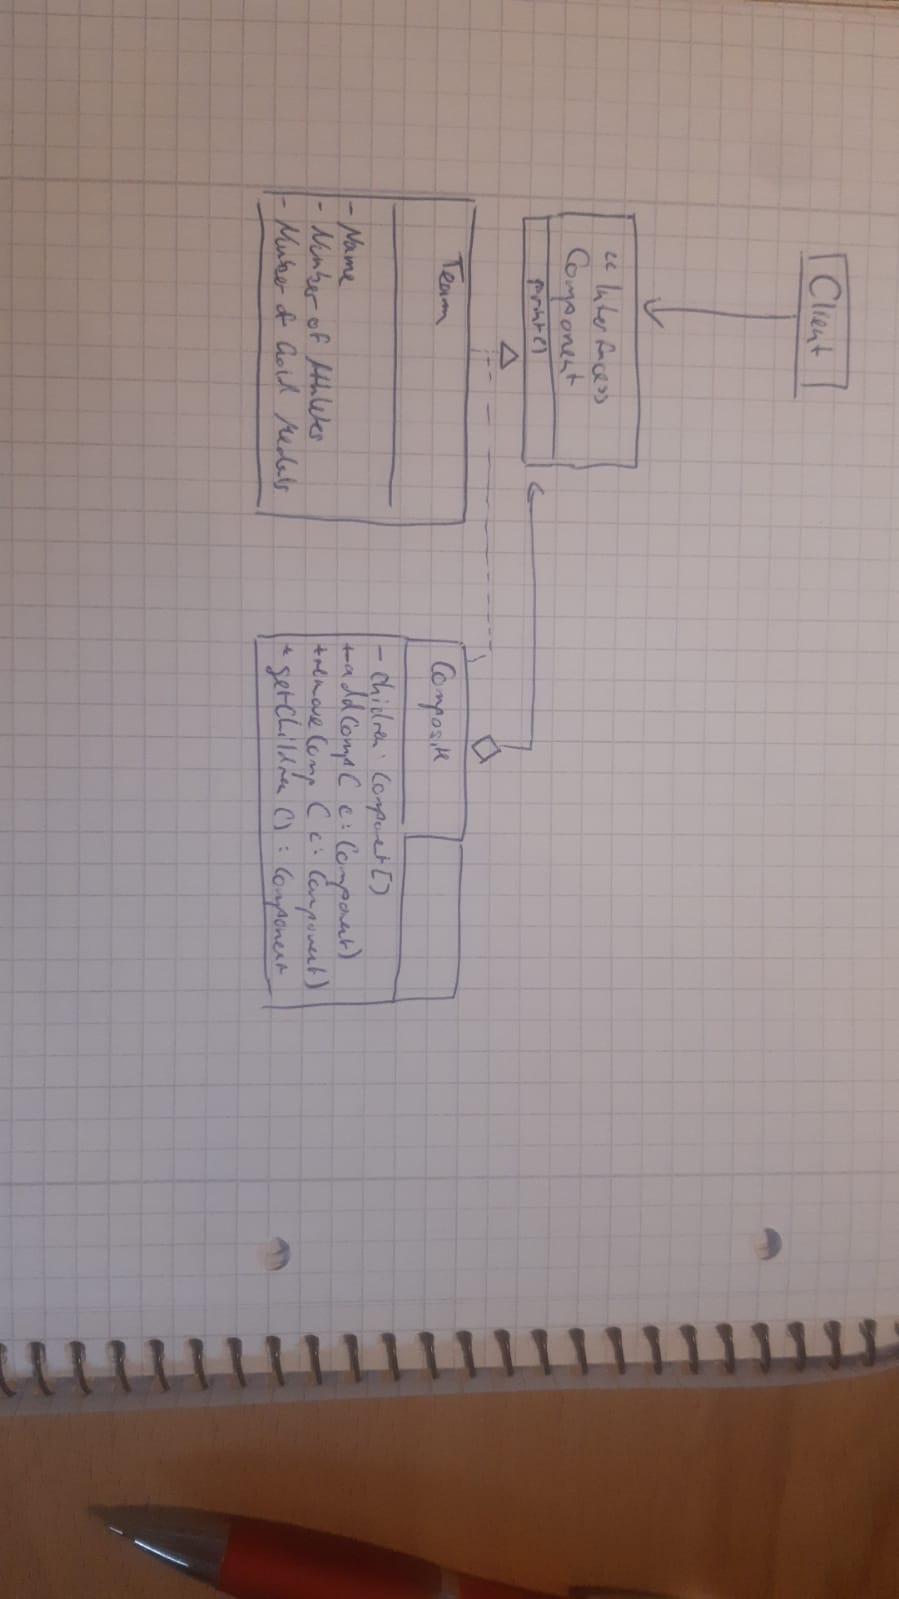 Client
<<Interface>>
Component
print()
Team
- Name
- Number of Athletes
- Number of Gold Medals
Composite
- children: Component[]
+ addComp( c: Component)
+ removeComp( c: Component)
+ getChildren () : Component